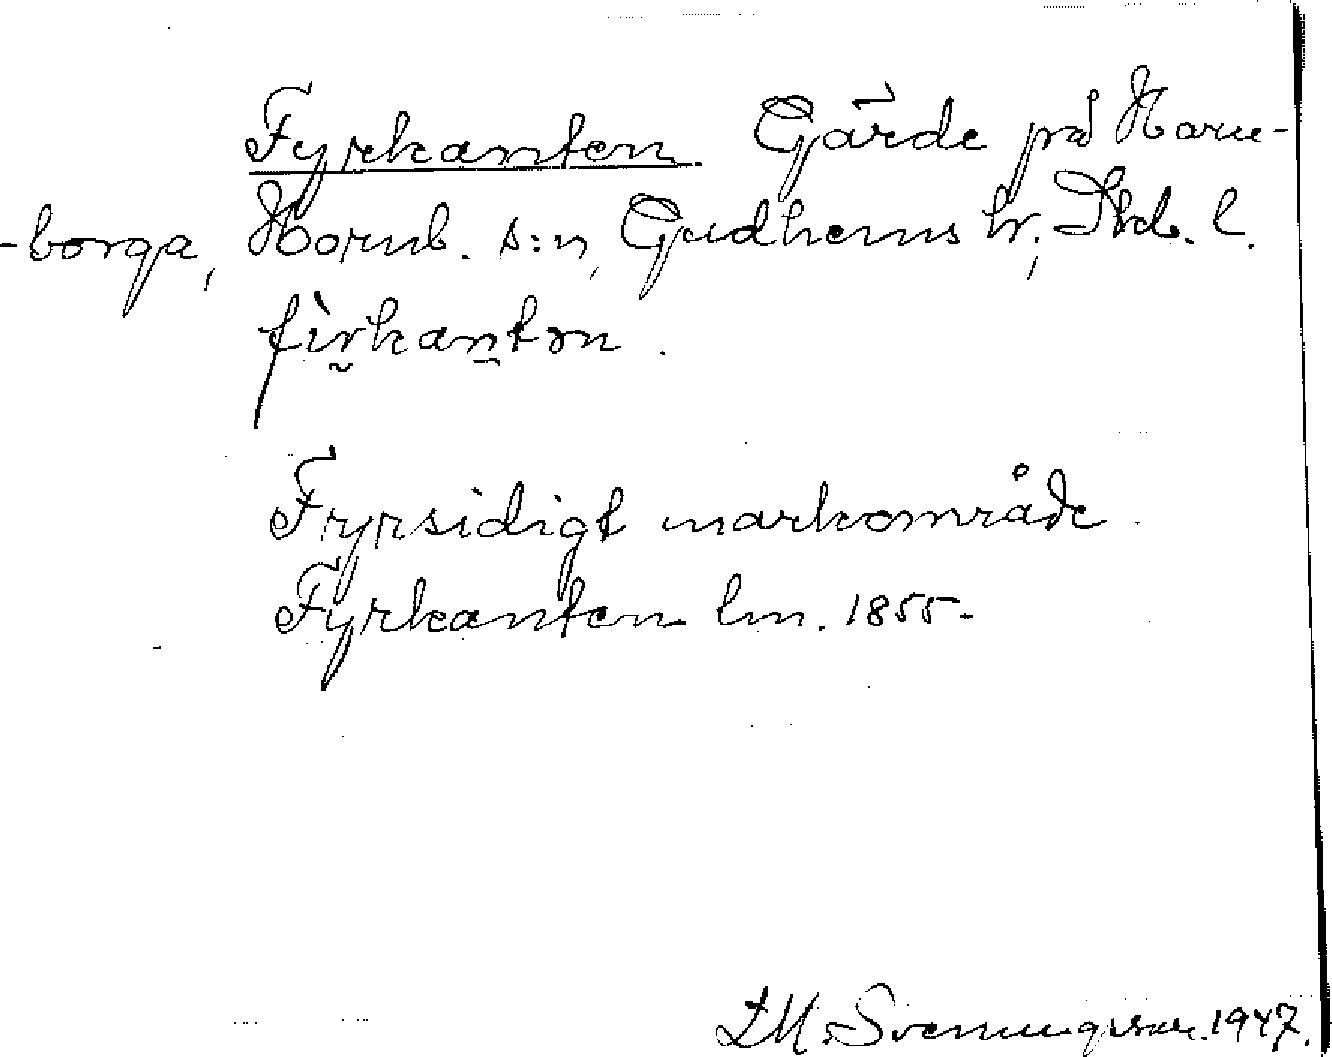 Fyrkanten. Gärde på Horn-
-borga, Hornb. s:n, Gudhems hr, Skb. l.
fìrkantən.
Fyrsidigt markområde.
Fyrkanten lm. 1855-
Svenungsson. 1947.